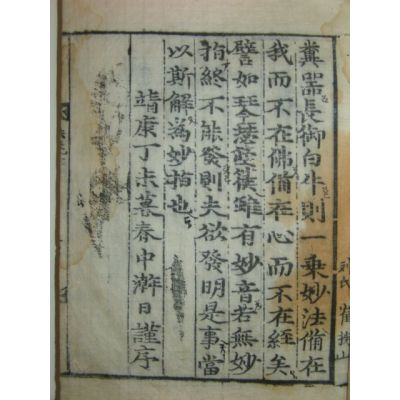 糞器長御白牛則一乘妙法備在
我而不在佛備在心而不在經矣
譬如琴瑟箜篌雖有妙音若無妙
指終不能發則夫欲發明是事當
以斯解為妙指也
靖康丁未暮春中澣日謹序